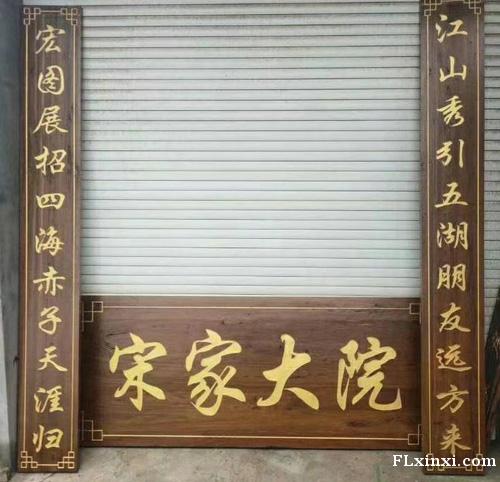 江山秀引五湖朋友远方来
宏图展招四海赤子天涯归
宋家大院
FLxinxi.com